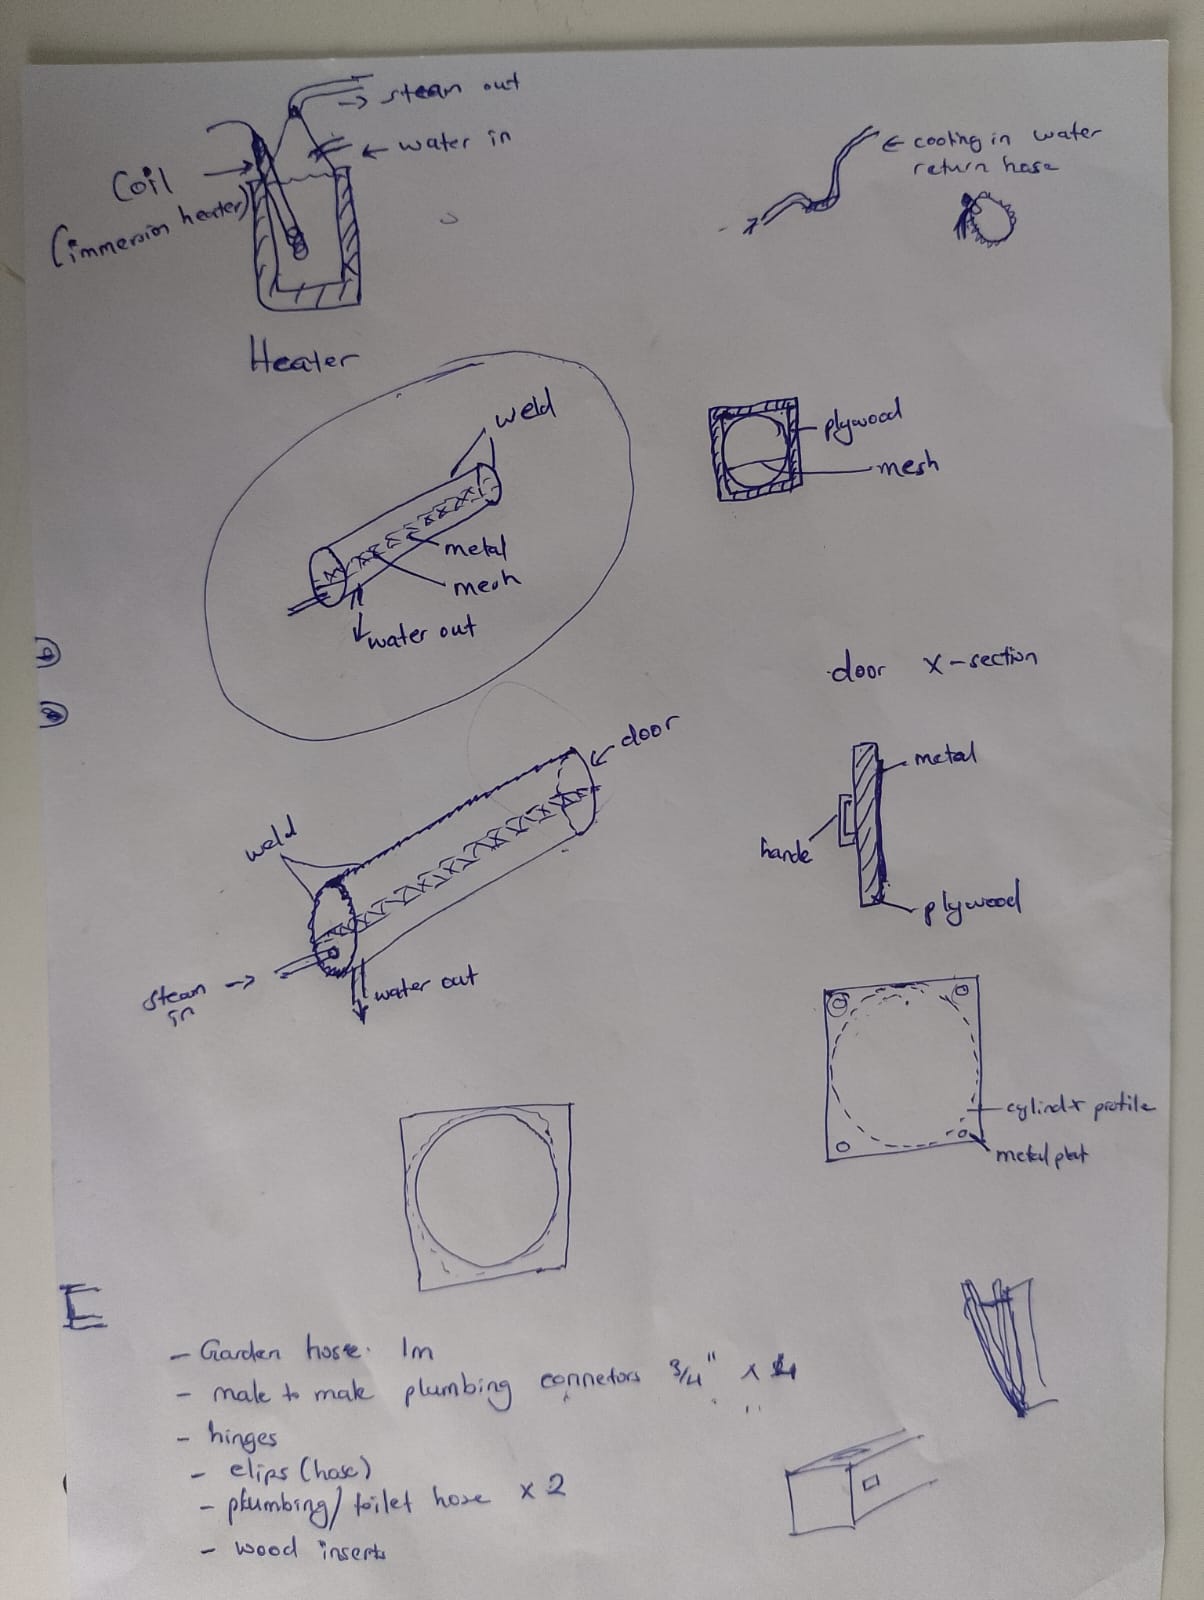 → steam out
← water in
Coil →
(immersion heater)
Heater
← cooling in water
return hose
weld
metal
mesh
water out
plywood
mesh
door x-section
door
weld
steam →
in
water out
metal
hande
plywood
cylindr profile
metal plat
E
- Garden hose. 1m
- male to male plumbing connetors 3/4" x 4
- hinges
- clips (hose)
- plumbing/toilet hose x 2
- wood inserts